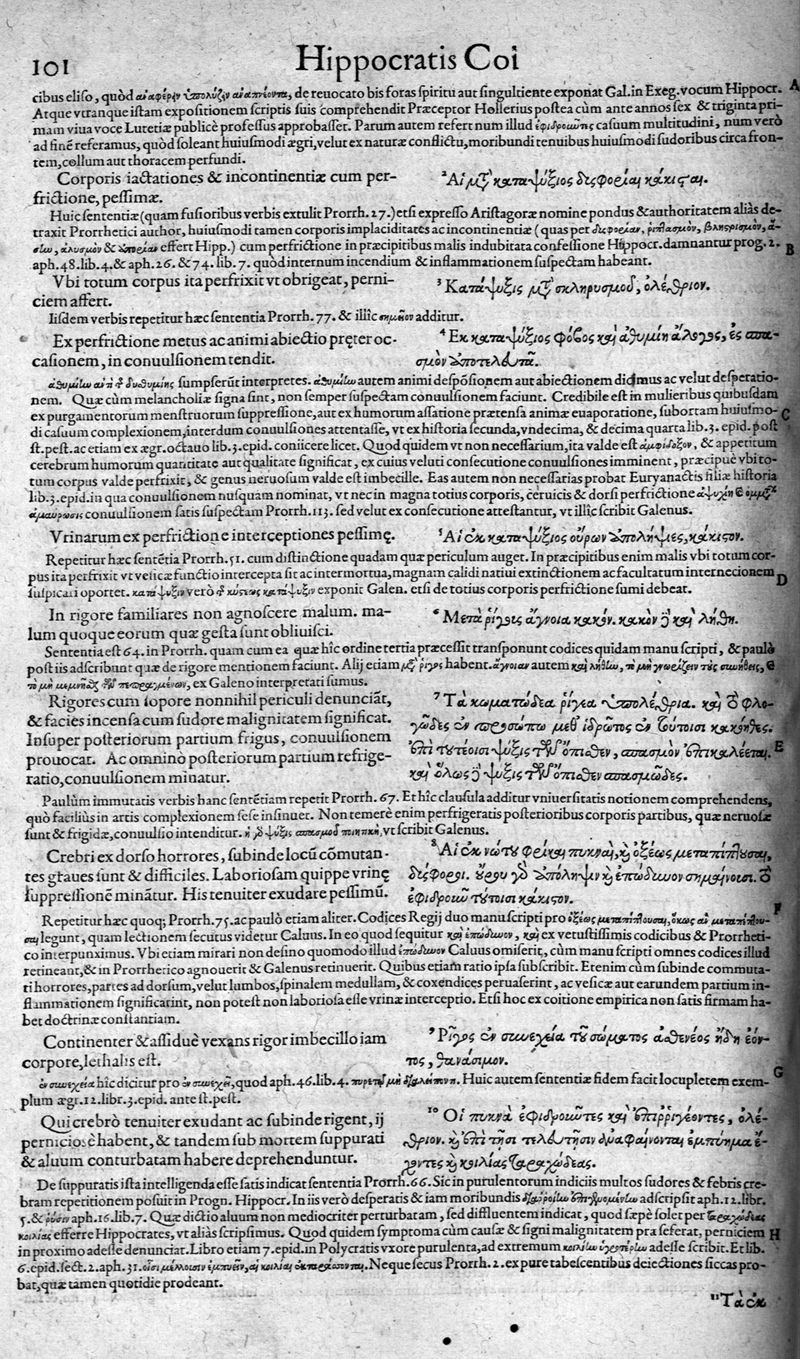 101 Hippocratis Coi
cibus eliso, quòd de reuocato bis foras spiritu aut singultiente exponat Gal. in Exeg. vocum Hippocr. A
Atque vtranque istam expositionem scriptis suis comprehendit Præceptor Hollerius postea cùm ante annos sex & triginta pri-
mam viua voce Lutetiæ publicè professus approbasset. Parum autem refert num illud ἐφιδροῦντες casuum multitudini, num verò
ad finē referamus, quòd soleant huiusmodi ægri, velut ex naturæ conflictu, moribundi tenuibus huiusmodi sudoribus circa fron-
tem, collum aut thoracem perfundi.
Corporis iactationes & incontinentiæ cum per- ² Αἱ μετὰ καταψύξιος δυσφορίαι κάκισται.
frictione, pessimæ.
Huic sententiæ (quam fusioribus verbis extulit Prorrh. 27.) etsi expresso Aristagoræ nomine pondus & authoritatem aliàs de-
traxit Prorrhetici author, huiusmodi tamen corporis implaciditates ac incontinentiæ (quas per
effert Hipp.) cum perfrictione in præcipitibus malis indubitata confessione Hippocr. damnantur prog. 2. B
aph. 48. lib. 4. & aph. 26. & 74. lib. 7. quòd internum incendium & inflammationem suspectam habeant.
Vbi totum corpus ita perfrixit vt obrigeat, perni- ³ Κατάψυξις μετὰ σκληρυσμοῦ, ὀλέθριον.
ciem affert.
Iisdem verbis repetitur hæc sententia Prorrh. 77. & illic σημεῖον additur.
Ex perfrictione metus ac animi abiectio pręter oc- ⁴ Ἐκ καταψύξιος φόβος καὶ ἀθυμίη ἄλογος, ἐς σπα-
casionem, in conuulsionem tendit. σμὸν ἀποτελευτᾷ.
sumpserūt interpretes. autem animi despōsionem aut abiectionem dicimus ac velut desperatio-
nem. Quæ cùm melancholiæ signa sint, non semper suspectam conuulsionem faciunt. Credibile est in mulieribus quibusdam
ex purgamentorum menstruorum suppressione, aut ex humorum assatione prætensa animæ euaporatione, subortam huiusmo- C
di casuum complexionem, interdum conuulsiones attentasse, vt ex historia secunda, vndecima, & decima quarta lib. 3. epid. post
st. pest. ac etiam ex ægr. octauo lib. 3. epid. coniicere licet. Quod quidem vt non necessarium, ita valde est ἀμφίδοξον, & appetitum
cerebrum humorum quantitate aut qualitate significat, ex cuius veluti consecutione conuulsiones imminent, præcipuè vbi to-
tum corpus valde perfrixit, & genus neruosum valde est imbecille. Eas autem non necessarias probat Euryanactis filiæ historia
lib. 3. epid. in qua conuulsionem nusquam nominat, vt nec in magna totius corporis, ceruicis & dorsi perfrictione
conuulsionem satis suspectam Prorrh. 113. sed velut ex consecutione attestantur, vt illîc scribit Galenus.
Vrinarum ex perfrictione interceptiones pessimę. ⁵ Αἱ ἐκ καταψύξιος οὔρων ἀπολήψιες, κάκιστον.
Repetitur hæc sentētia Prorrh. 51. cum distinctione quadam quæ periculum auget. In præcipitibus enim malis vbi totum cor-
pus ita perfrixit vt vesicæ functio intercepta sit ac intermortua, magnam calidi natiui extinctionem ac facultatum internecionem D
suspicari oportet. κατάψυξιν verò κύστεως κατάψυξιν exponit Galen. etsi de totius corporis perfrictione sumi debeat.
In rigore familiares non agnoscere malum. ma- ⁶ Μετὰ ῥίγεος ἄγνοια, κακόν. κακὸν δὲ καὶ λήθη.
lum quoque eorum quæ gesta sunt obliuisci.
Sententia est 64. in Prorrh. quam cum ea quæ hîc ordine tertia præcessit transponunt codices quidam manu scripti, & paulò
post iis adscribunt quæ de rigore mentionem faciunt. Alij etiam μετὰ ῥῖγος habent. ἄγνοιαν autem καὶ λήθην, τὸ μὴ γνωρίζειν τοὺς συνήθεις, &
τὸ μὴ μεμνῆσθαι τῶν πεπραγμένων, ex Galeno interpretati sumus.
Rigores cum sopore nonnihil periculi denunciāt, ⁷ Τὰ κωματώδεα ῥίγεα ὑπολέθρια. καὶ τὸ φλο-
& facies incensa cum sudore malignitatem significat. γῶδες ἐν προσώπῳ μεθ᾽ ἱδρῶτος ἐν τούτοισι κακόηθες.
Insuper posteriorum partium frigus, conuulsionem ἐπὶ τουτέοισι ψύξις τῶν ὄπισθεν, σπασμὸν ἐπικαλέεται. E
prouocat. Ac omnino posteriorum partium refrige- καὶ ὅλως δὲ ψύξις τῶν ὄπισθεν σπασμῶδες.
ratio, conuulsionem minatur.
Paulùm immutatis verbis hanc sentētiam repetit Prorrh. 67. Et hîc clausula additur vniuersitatis notionem comprehendens,
quò facilius in artis complexionem sese insinuet. Non temerè enim perfrigeratis posterioribus corporis partibus, quæ neruosæ
sunt & frigidæ, conuulsio intenditur. ἡ γὰρ ψύξις σπασμοῦ ποιητική, vt scribit Galenus.
Crebri ex dorso horrores, subinde locū cōmutan- ⁸ Αἱ ἐκ νώτου φρῖκαι πυκναί, καὶ ὀξέως μεταπίπτουσαι,
tes graues sunt & difficiles. Laboriosam quippe vrinę δύσφοροι. οὔρου γὰρ ἀπόληψιν καὶ ἐπώδυνον σημαίνουσι. τὸ
suppressionē minātur. His tenuiter exudare pessimū. ἐφιδροῦν τούτοισι κάκιστον.
Repetitur hæc quoq; Prorrh. 75. ac paulò etiam aliter. Codices Regij duo manuscripti pro ὀξέως μεταπίπτουσαι, F
legunt, quam lectionem secutus videtur Caluus. In eo quod sequitur καὶ ἐπώδυνον, καὶ ex vetustissimis codicibus & Prorrheti-
co interpunximus. Vbi etiam mirari non desino quomodo illud ἐπώδυνον Caluus omiserit, cùm manu scripti omnes codices illud
retineant, & in Prorrhetico agnouerit & Galenus retinuerit. Quibus etiam ratio ipsa subscribit. Etenim cùm subinde commuta-
ti horrores, partes ad dorsum, velut lumbos, spinalem medullam, & coxendices peruaserint, ac vesicæ aut earundem partium in-
flammationem significarint, non potest non laboriosa esse vrinæ interceptio. Etsi hoc ex coitione empirica non satis firmam ha-
bet doctrinæ constantiam.
Continenter & assiduè vexans rigor imbecillo iam ⁹ Ῥῖγος ἐν συνεχείᾳ τοῦ σώματος ἀσθενέος ἤδη ἐόν-
corpore, lethalis est. τος, θανάσιμον.
ἐν συνεχείᾳ hîc dicitur pro ἐν συνεχεῖ, quod aph. 46. lib. 4. πυρετῷ μὴ διαλείποντι. Huic autem sententiæ fidem facit locupletem exem- G
plum ægr. 12. libr. 3. epid. ante st. pest.
Qui crebrò tenuiter exudant ac subinde rigent, ij ¹⁰ Οἱ πυκνὰ ἐφιδροῦντες καὶ ἐπιρριγέοντες, ὀλέ-
perniciosè habent, & tandem sub mortem suppurati θριον. καὶ ἐπὶ τῇσι τελευτῇσιν ἀναφαίνονται ἐμπύημα ἔ-
& aluum conturbatam habere deprehenduntur. χοντες καὶ κοιλίας ταραχώδεας.
De suppuratis ista intelligenda esse satis indicat sententia Prorrh. 66. Sic in purulentorum indiciis multos sudores & febris cre-
bram repetitionem posuit in Progn. Hippocr. In iis verò desperatis & iam moribundis adscripsit aph. 12. libr.
5. & ῥύσιν aph. 16. lib. 7. Quæ dictio aluum non mediocriter perturbatam, sed diffluentem indicat, quod sæpè solet per ταραχώδεας
κοιλίας efferre Hippocrates, vt aliàs scripsimus. Quod quidem symptoma cùm causæ & signi malignitatem præ se ferat, perniciem H
in proximo adesse denunciat. Libro etiam 7. epid. in Polycratis vxore purulenta, ad extremum adesse scribit. Et lib.
6. epid. sect. 2. aph. 31. Neque secus Prorrh. 2. ex pure tabescentibus deiectiones siccas pro-
bat, quæ tamen quotidie prodeant.
¹¹ Τὰ ἐκ